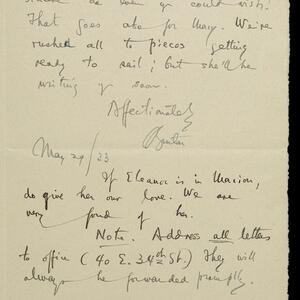 as you could wish.
That goes also for Mary. We've
rushed all to pieces getting
ready to sail; but she'll be
writing yr soon.
Affectionately
May 29/33
If Eleanor is in Marion,
do give her our love. We are
very fond of her.
Note. Address all letters
to office (40 E. 34th St.) They will
always be forwarded promptly.